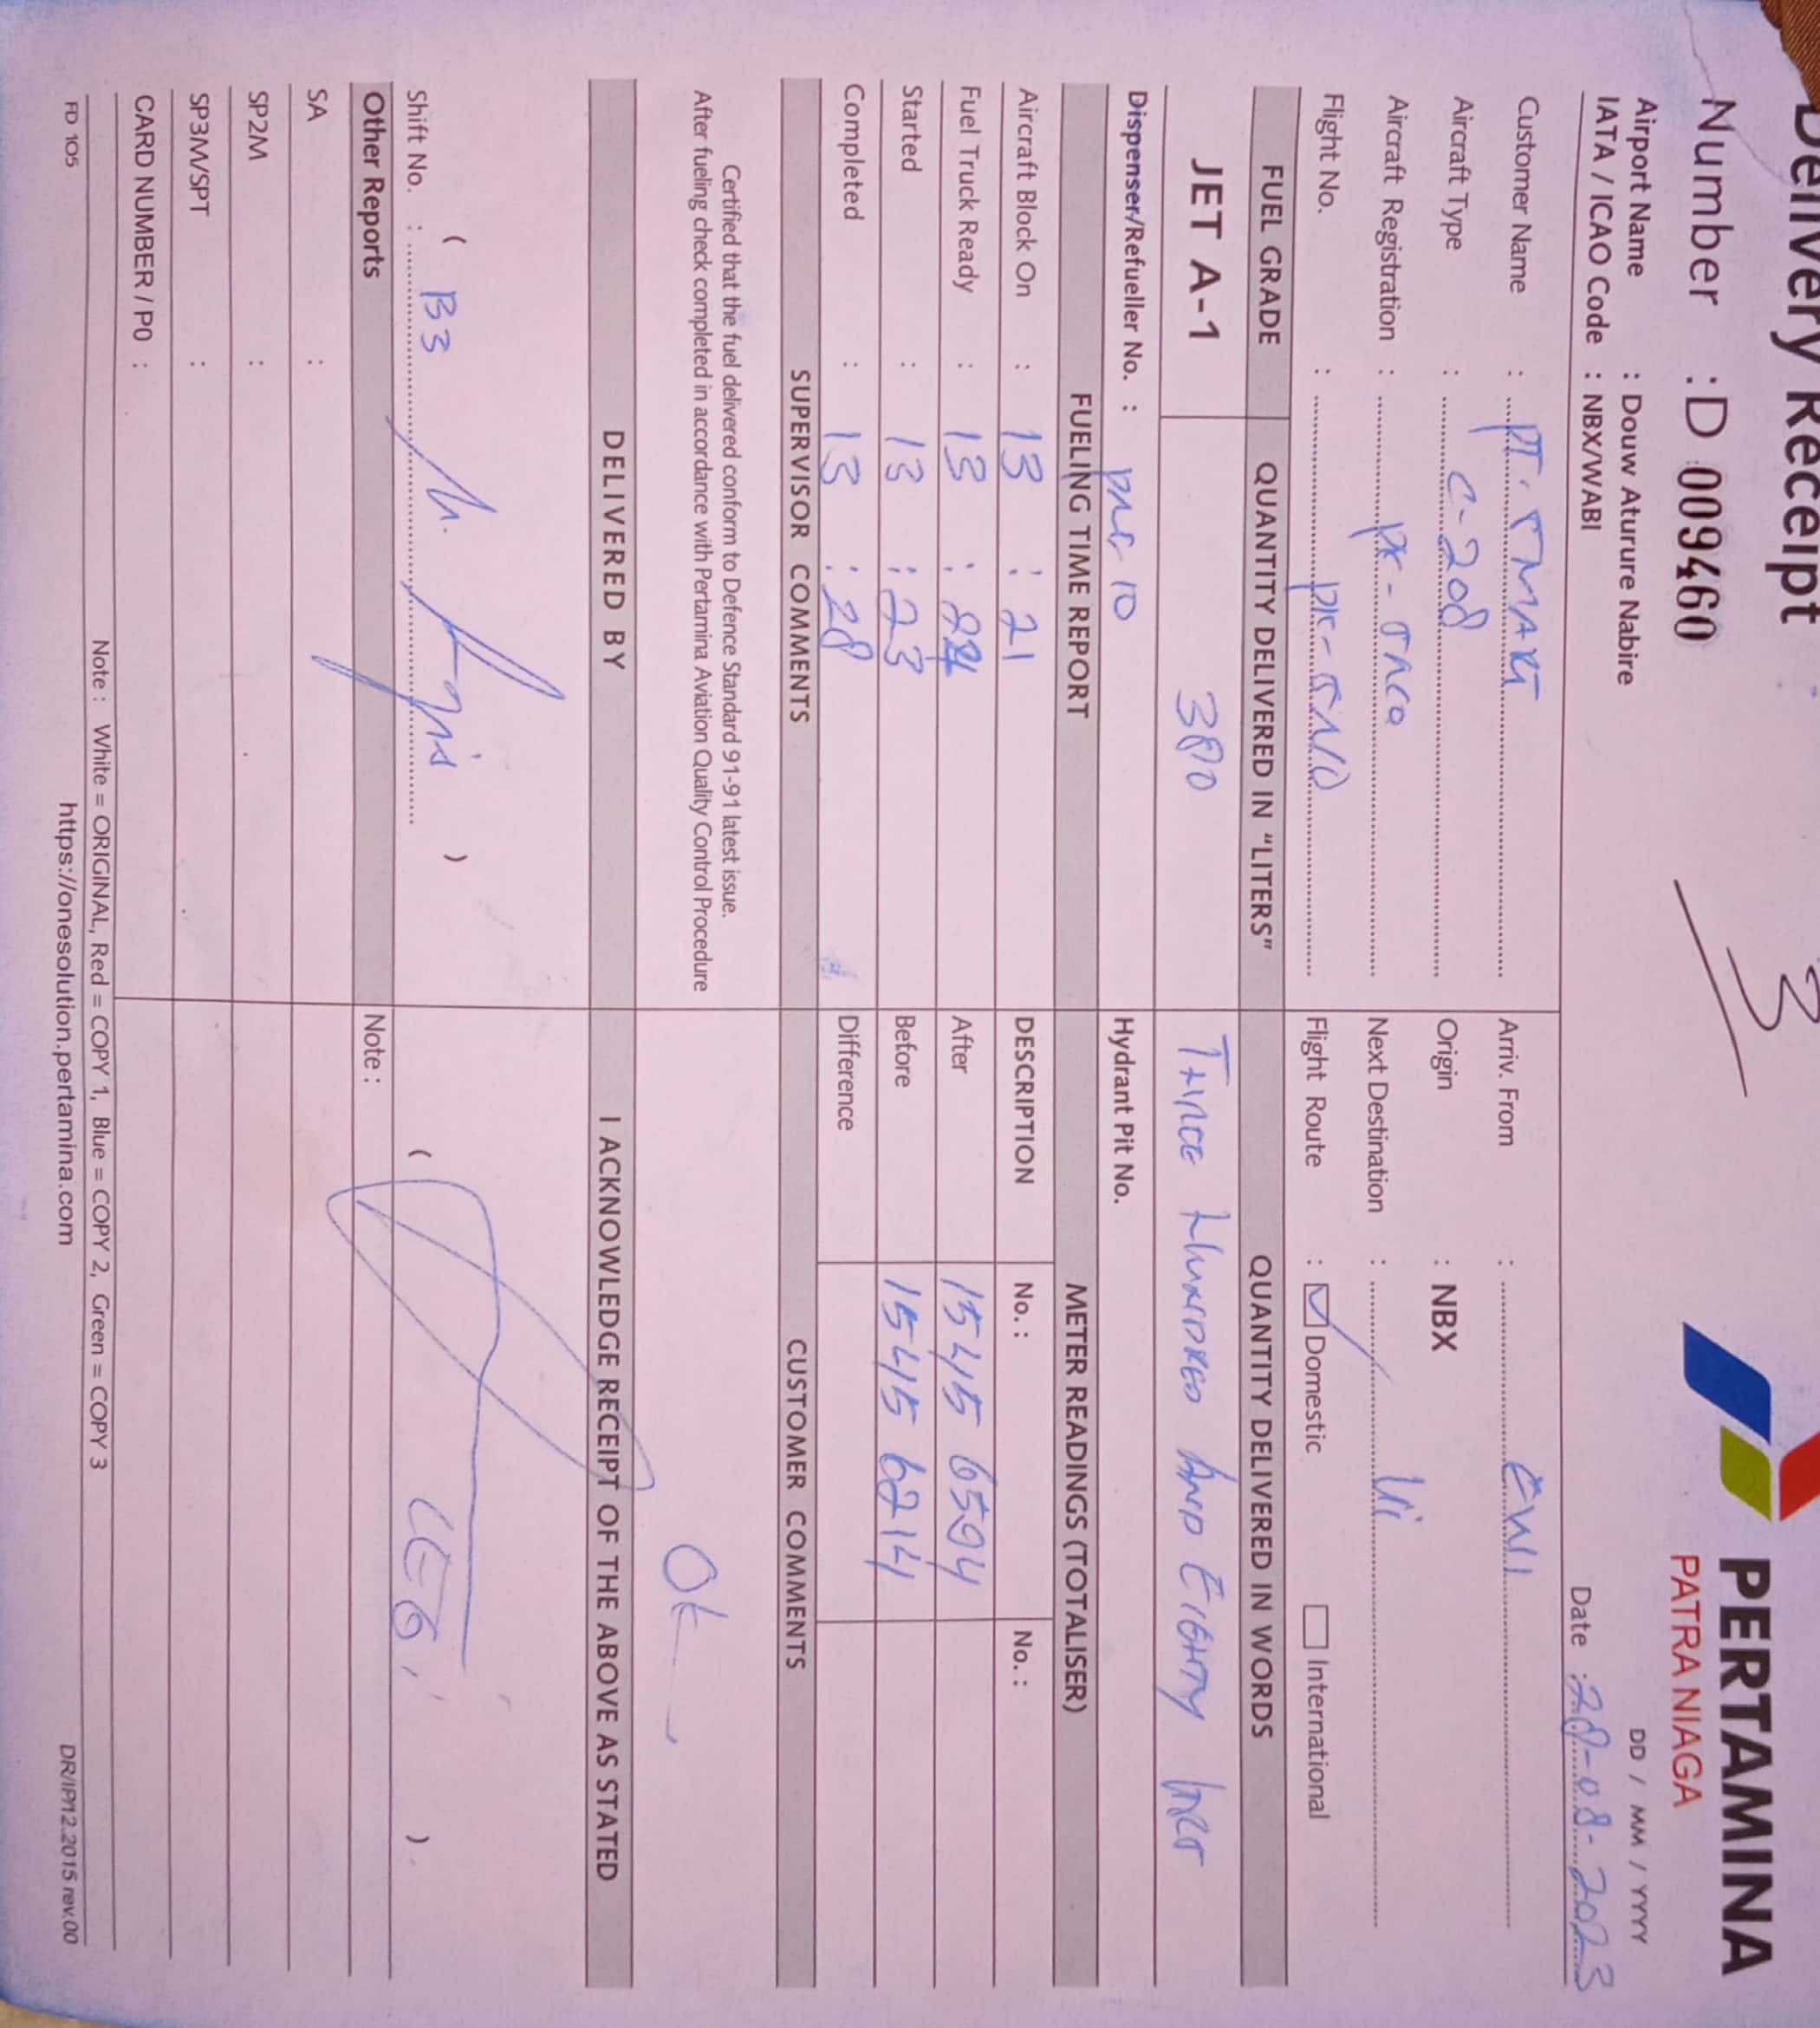 Delivery Receipt
Number : D 009460
3
PERTAMINA
PATRA NIAGA
Airport Name : Douw Aturure Nabire
IATA / ICAO Code : NBX/WABI
DD / MM / YYYY
Date : 28-08-2023
Customer Name : PT. SMART
Aircraft Type : C-208
Aircraft Registration : PK-
Flight No. : PK-
Arriv. From :
Origin : NBX
Next Destination :
Flight Route : Domestic International
FUEL GRADE QUANTITY DELIVERED IN "LITERS" QUANTITY DELIVERED IN WORDS
JET A-1 380 THREE HUNDRED AND EIGHTY LITER
Dispenser/Refueller No. : 10 Hydrant Pit No.
FUELING TIME REPORT METER READINGS (TOTALISER)
Aircraft Block On : 13 : 21 DESCRIPTION No. : No. :
Fuel Truck Ready : 13 : After 15415 6594
Started : 13 : 23 Before 15415 6214
Completed : 13 : 28 Difference
SUPERVISOR COMMENTS CUSTOMER COMMENTS
Certified that the fuel delivered conform to Defence Standard 91-91 latest issue.
After fueling check completed in accordance with Pertamina Aviation Quality Control Procedure
OK
DELIVERED BY I ACKNOWLEDGE RECEIPT OF THE ABOVE AS STATED
( )
Shift No. : B3
( )
Other Reports Note :
SA :
SP2M :
SP3M/SPT :
CARD NUMBER / PO :
Note : White = ORIGINAL, Red = COPY 1, Blue = COPY 2, Green = COPY 3
FD 105 https://onesolution.pertamina.com DR/IP/12.2015 rev.00